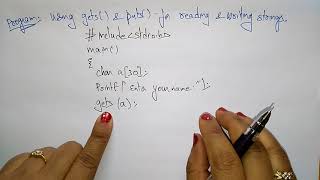 Program: using gets() & puts() - for reading & writing strings.
# include <stdio.h>
main()
{
char a[30];
printf ("Enter your name:");
gets (a);